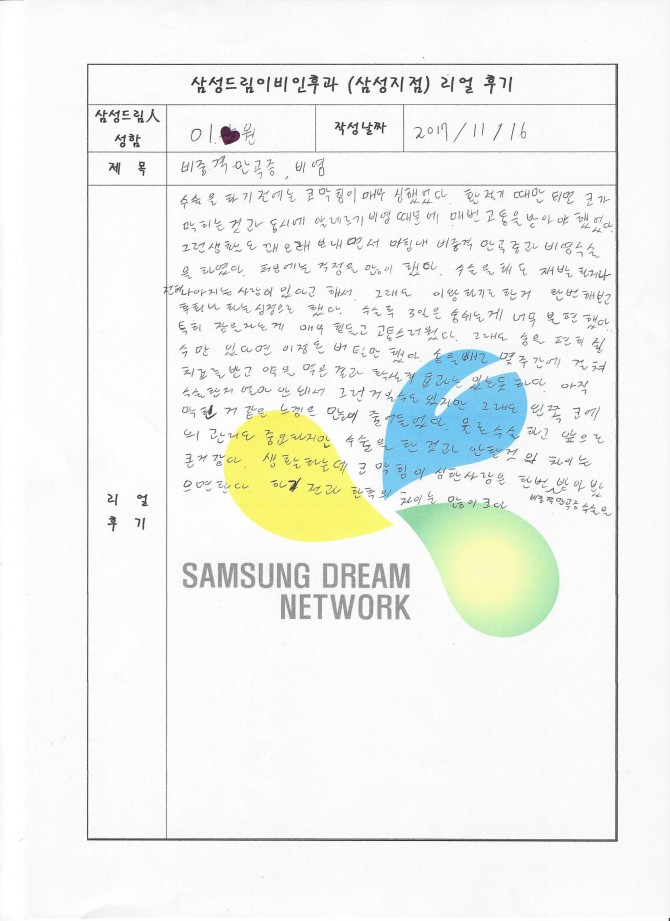 삼성드림이비인후과 (삼성지점) 리얼 후기
삼성드림人
성함
이.원
작성날짜
2017/11/16
제 목
비중격만곡증, 비염
리 얼
후 기
수술을 하기 전에는 코막힘이 매우 심했었다. 환절기 때만 되면 코가
막히는 것과 동시에 알레르기비염 때문에 매번 고통을 받아야 했었다.
그런생활도 꽤 오래 보내면서 마침내 비중격 만곡증과 비염수술
을 하였다. 처음에는 걱정을 많이 했다. 수술을 해도 재발 하거나
전혀 나아지는 사람이 있다고 해서. 그래도 이왕하기로 한거 한번 해보고
후회나 하는 심정으로 했다. 수술후 3일은 숨쉬는게 너무 불편했다.
특히 잠을자는게 매우 힘들고 고통스러웠다. 그래도 숨을 편히 쉴
수만 있다면 이정돈 버틸만 했다. 솜을빼고 몇주간에 걸쳐
치료를 받고 약을 먹은 결과 확실히 효과는 있는듯 하다. 아직
수술한지 얼마 안 돼서 그런거일수도 있지만 그래도 왼쪽 코에
막힌 거 같은 느낌은 많이 줄어들었다. 물론수술 하고 앞으로
의 관리도 중요하지만 수술을 한 것과 안한것의 차이는
큰거같다. 생활하는데 코막힘이 심한사람은 한번 받아 봤
으면한다. 하기 전과 한후의 차이는 많이 크다 비중격만곡증 수술을
SAMSUNG DREAM
NETWORK